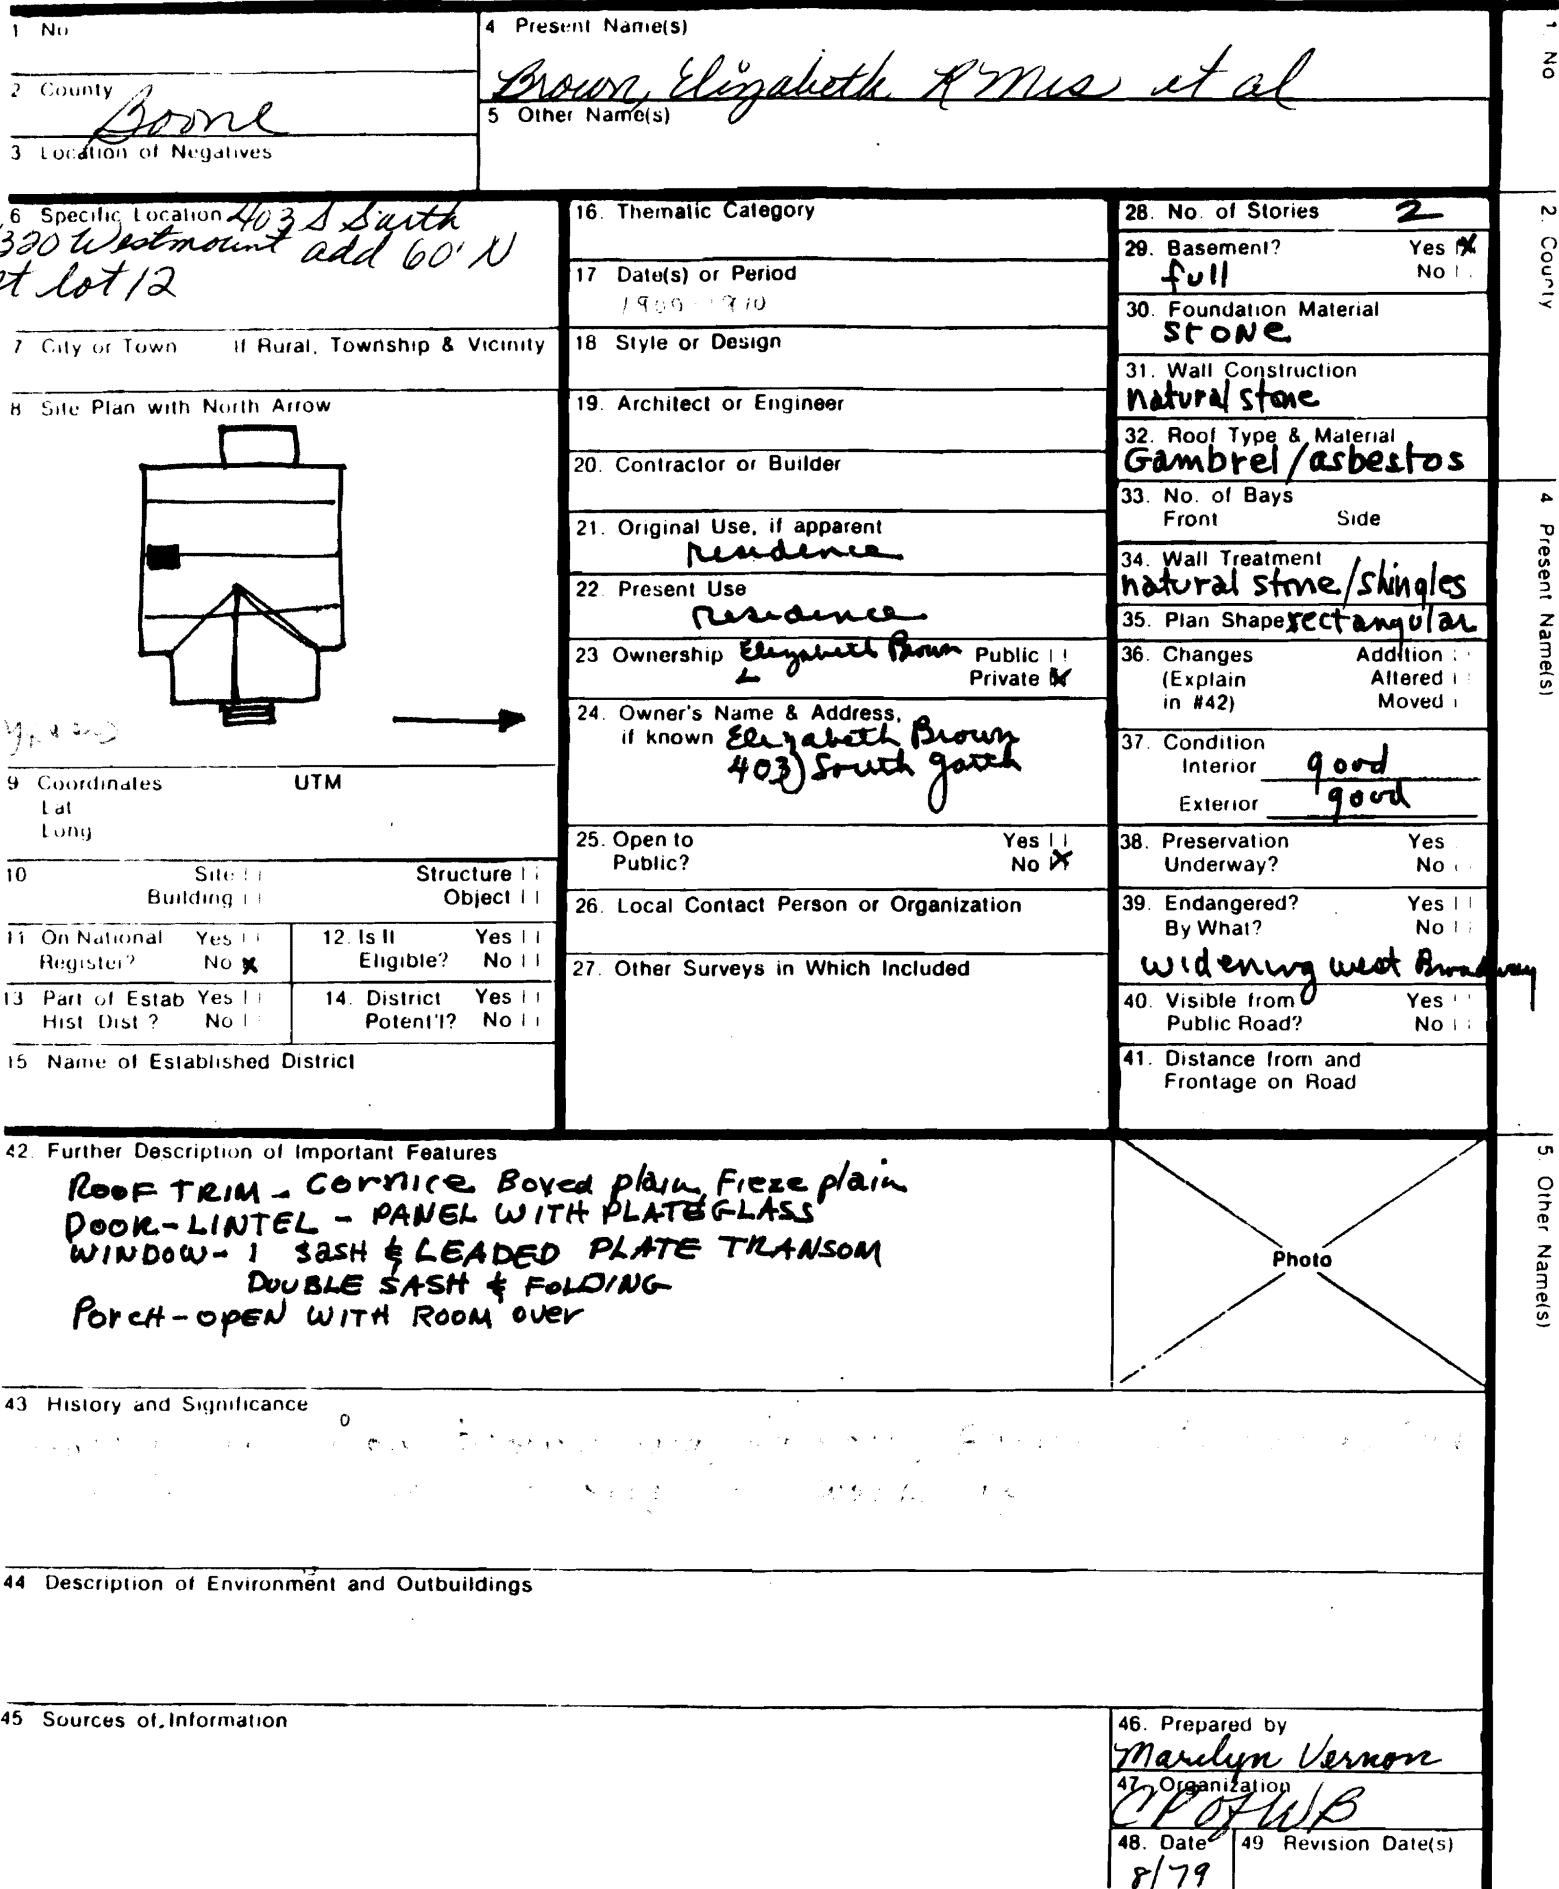 1 No
4 Present Name(s)
Brown, Elizabeth R Mrs et al
2 County
Boone
5 Other Name(s)
3 Location of Negatives
6 Specific Location 403 S
320 Westmount add 60' N
lot 12
7 City or Town If Rural, Township & Vicinity
8 Site Plan with North Arrow
9 Coordinates UTM
Lat
Long
10 Site Structure
Building Object
11 On National Yes
Register? No X
12. Is It Yes
Eligible? No
13 Part of Estab Yes
Hist Dist? No
14. District Yes
Potent'l? No
15 Name of Established District
16. Thematic Category
17 Date(s) or Period
1900-1910
18 Style or Design
19. Architect or Engineer
20. Contractor or Builder
21. Original Use, if apparent
residence
22. Present Use
residence
23 Ownership Elizabeth Brown Public
Private X
24. Owner's Name & Address,
if known Elizabeth Brown
403 South
25. Open to Yes
Public? No X
26. Local Contact Person or Organization
27. Other Surveys in Which Included
28. No. of Stories 2
29. Basement? Yes X
full No
30. Foundation Material
stone
31. Wall Construction
natural stone
32. Roof Type & Material
Gambrel/asbestos
33. No. of Bays
Front Side
34. Wall Treatment
natural stone/shingles
35. Plan Shape rectangular
36. Changes Addition
(Explain Altered
in #42) Moved
37. Condition
Interior good
Exterior good
38. Preservation Yes
Underway? No
39. Endangered? Yes
By What? No
widening west Broadway
40. Visible from Yes
Public Road? No
41. Distance from and
Frontage on Road
42. Further Description of Important Features
ROOF TRIM - Cornice Boxed plain, Fieze plain
DOOR-LINTEL - PANEL WITH PLATE GLASS
WINDOW- 1 SASH & LEADED PLATE TRANSOM
DOUBLE SASH & FOLDING
Porch-OPEN WITH ROOM over
Photo
43 History and Significance
44 Description of Environment and Outbuildings
45 Sources of Information
46. Prepared by
Marilyn Vernon
47. Organization
CP of WB
48. Date
8/79
49 Revision Date(s)
1. No
2. County
4 Present Name(s)
5. Other Name(s)